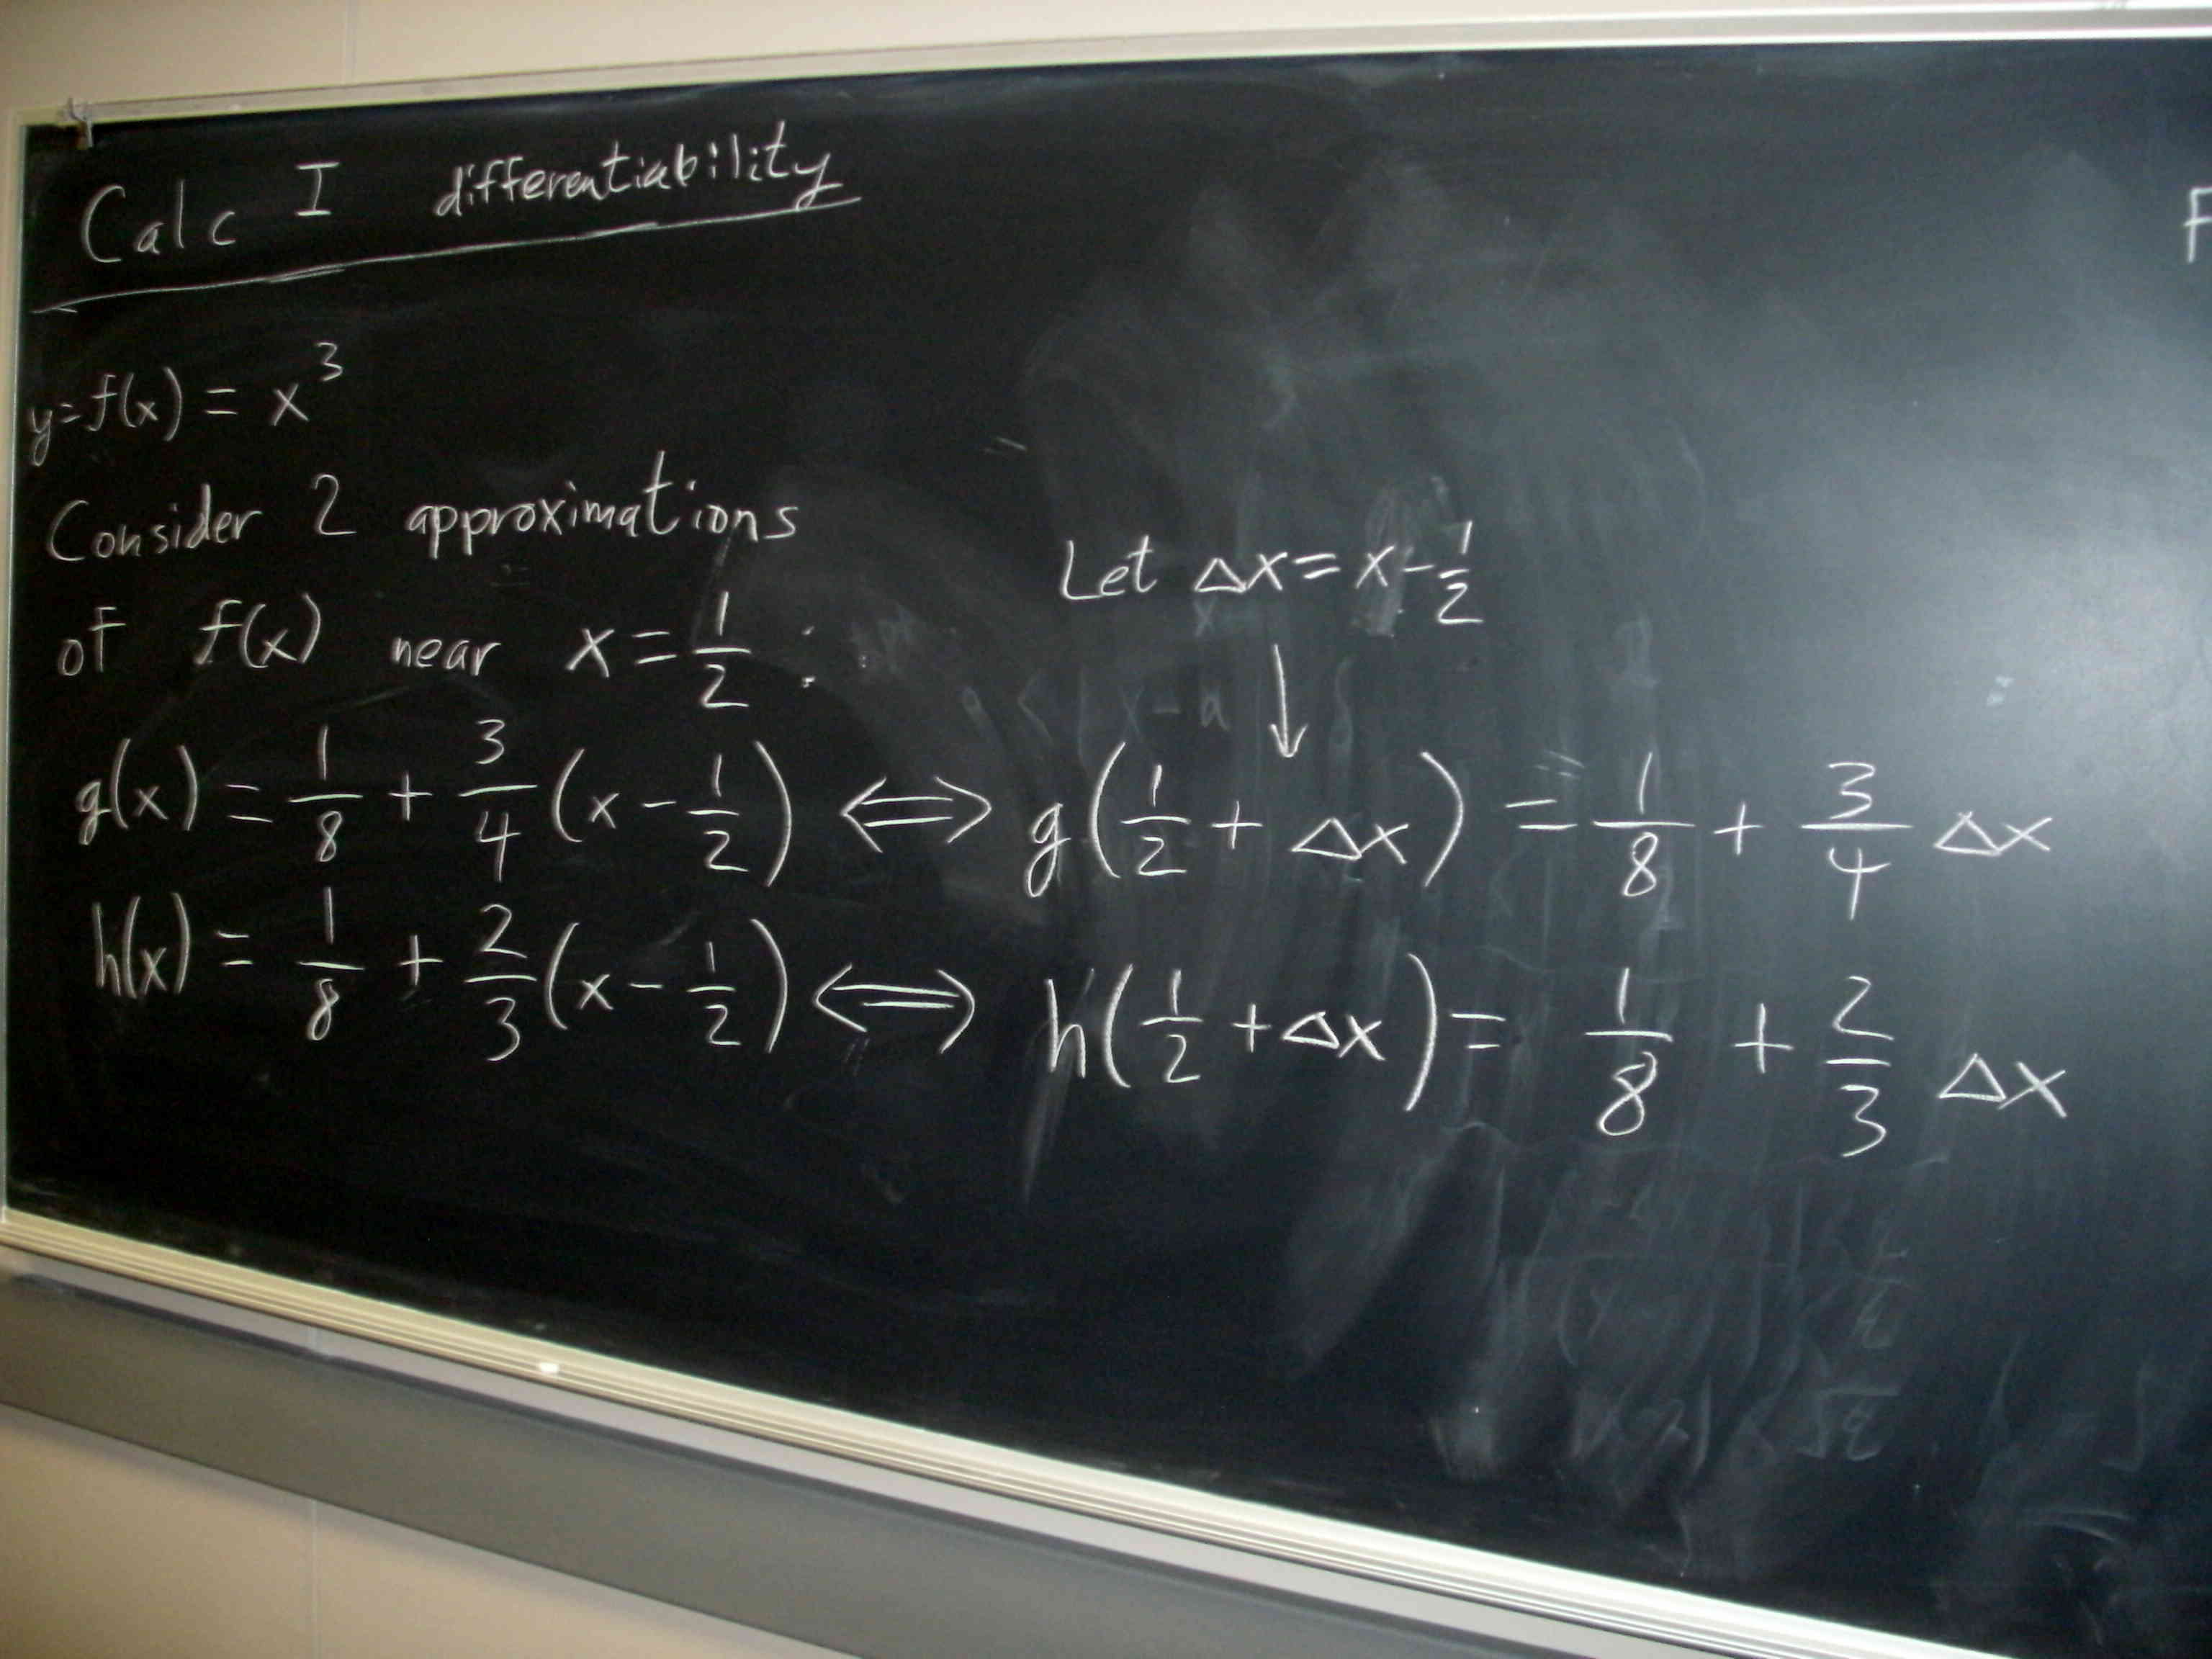 Calc I differentiability
y=f(x) = x³
Consider 2 approximations
of f(x) near x = 1/2 :
Let Δx = x - 1/2
↓
g(x) = 1/8 + 3/4 (x - 1/2) ⟺ g(1/2 + Δx) = 1/8 + 3/4 Δx
h(x) = 1/8 + 2/3 (x - 1/2) ⟺ h(1/2 + Δx) = 1/8 + 2/3 Δx